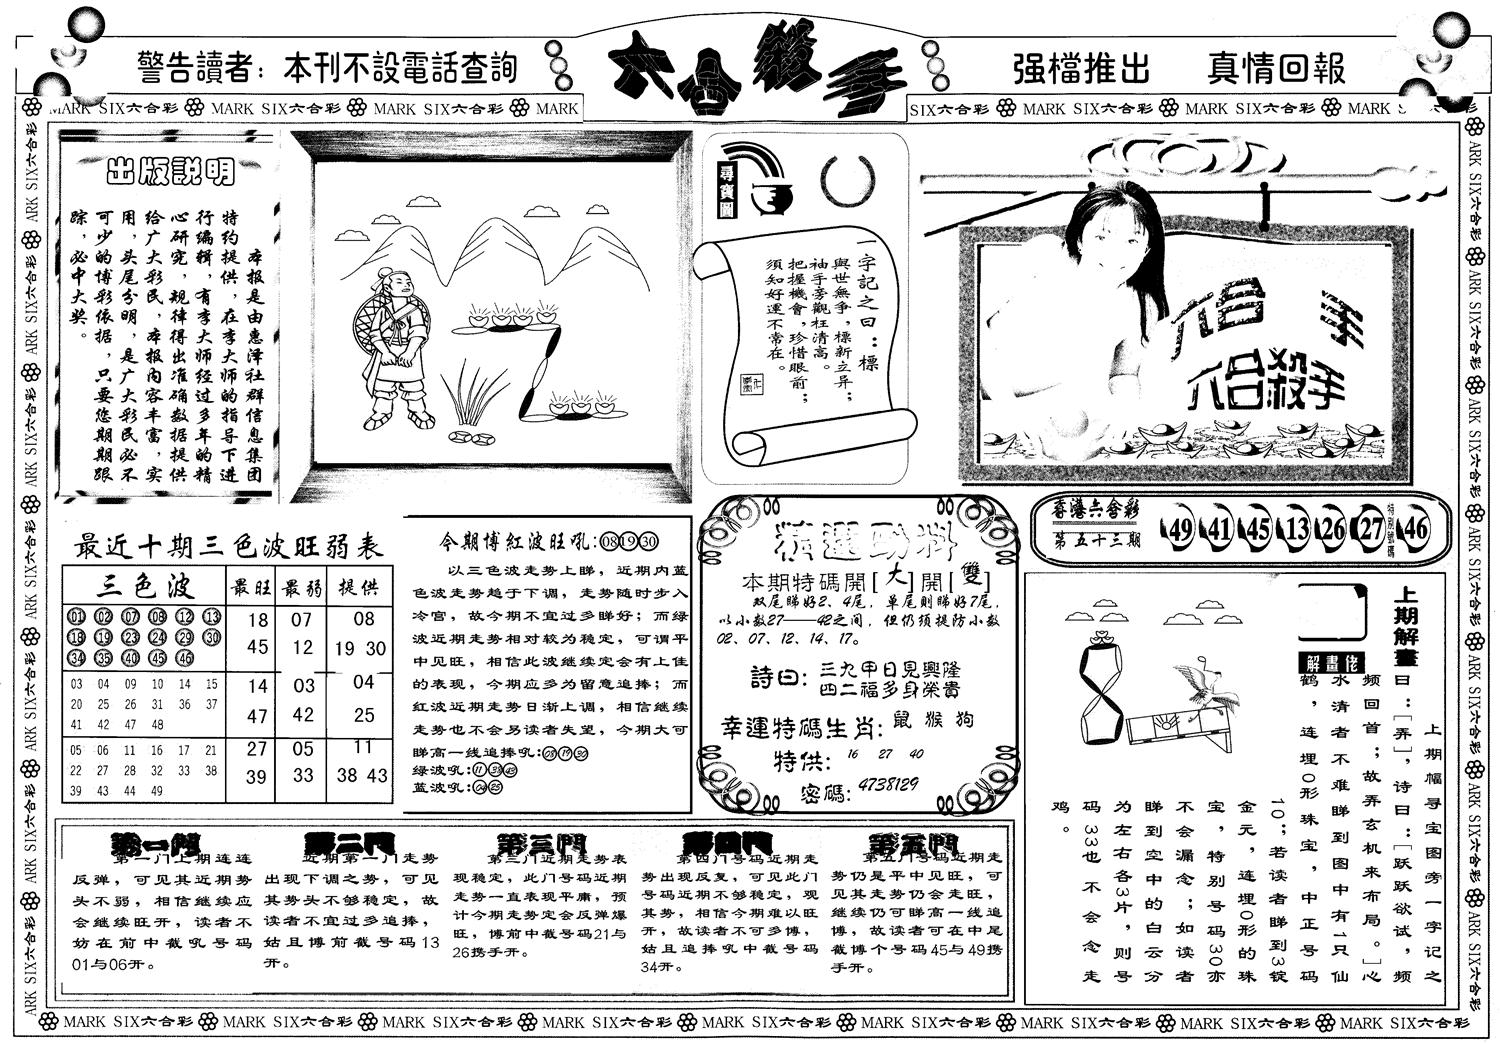 警告讀者：本刊不設電話查詢
六合殺手
强檔推出 真情回報
MARK SIX六合彩 MARK SIX六合彩 MARK SIX六合彩 MARK
SIX六合彩 MARK SIX六合彩 MARK SIX六合彩 MARK
出版説明
本报是由惠泽社群信息集团
特约提供，在李大师的指导下进
行编辑，有李大师经过多年的精
心研究，规律得出准确数据提供
给广大彩民，本报内容丰富，实
用，头尾分明，是广大彩民必不
可少的博彩依据，只要您期期跟
踪，必中大奖。
尋寶圖
一字記之曰：標
與世無爭，標新立异；
袖手旁觀枉清高。
把握機會，珍惜眼前；
須知好運不常在。
六合殺手
六合殺手
香港六合彩
第五十三期
49 41 45 13 26 27 特别號碼 46
最近十期三色波旺弱表
三色波 最旺 最弱 提供
01 02 07 08 12 13
18 19 23 24 29 30
34 35 40 45 46
18 07 08
45 12 19 30
03 04 09 10 14 15
20 25 26 31 36 37
41 42 47 48
14 03 04
47 42 25
05 06 11 16 17 21
22 27 28 32 33 38
39 43 44 49
27 05 11
39 33 38 43
今期博紅波旺吼：08 19 30
以三色波走势上睇，近期内蓝
色波走势趋于下调，走势随时步入
冷宫，故今期不宜过多睇好；而绿
波近期走势相对较为稳定，可谓平
中见旺，相信此波继续定会有上佳
的表现，今期应多为留意追捧；而
红波近期走势日渐上调，相信继续
走势也不会易读者失望，今期大可
睇高一线追捧吼：08 19 30
绿波吼：11 38 43
蓝波吼：04 25
精選勁料
本期特碼開[大]開[雙]
双尾睇好2、4尾，单尾则睇好7尾，
以小数27——42之间，但仍须提防小数
02、07、12、14、17。
詩曰：三九甲日見興隆
四二福多身榮貴
幸運特碼生肖：鼠 猴 狗
特供：16 27 40
密碼：4738129
上期解畫
解畫佬
上期幅寻宝图旁一字记之
曰：[弄]，诗曰：[跃跃欲试，频
频回首；故弄玄机来布局。]心
水清者不难睇到图中有1只仙
鹤，连埋0形珠宝，中正号码
10；若读者睇到3锭
金元，连埋0形的珠
宝，特别号码30亦
不会漏念；如读者
睇到空中的白云分
为左右各3片，则号
码33也不会念走
鸡。
第一門
第一门上期连连
反弹，可见其近期势
头不弱，相信继续应
会继续旺开，读者不
妨在前中截吼号码
01与06开。
第二門
近期第一门走势
出现下调之势，可见
其势头不够稳定，故
读者不宜过多追捧，
姑且博前截号码13
开。
第三門
第三门近期走势表
现稳定，此门号码近期
走势一直表现平庸，预
计今期走势定会反弹爆
旺，博前中截号码21与
26携手开。
第四門
第四门号码近期走
势出现反复，可见此门
号码近期不够稳定，观
其势，相信今期难以旺
开，故读者不可多博，
姑且追捧吼中截号码
34开。
第五門
第五门号码近期走
势仍是平中见旺，可
见其走势仍会走旺，
继续仍可睇高一线追
博，故读者可在中尾
截博个号码45与49携
手开。
MARK SIX六合彩 MARK SIX六合彩 MARK SIX六合彩 MARK SIX六合彩 MARK SIX六合彩 MARK SIX六合彩 MARK SIX六合彩 MARK SIX六合彩 MARK SIX六合彩